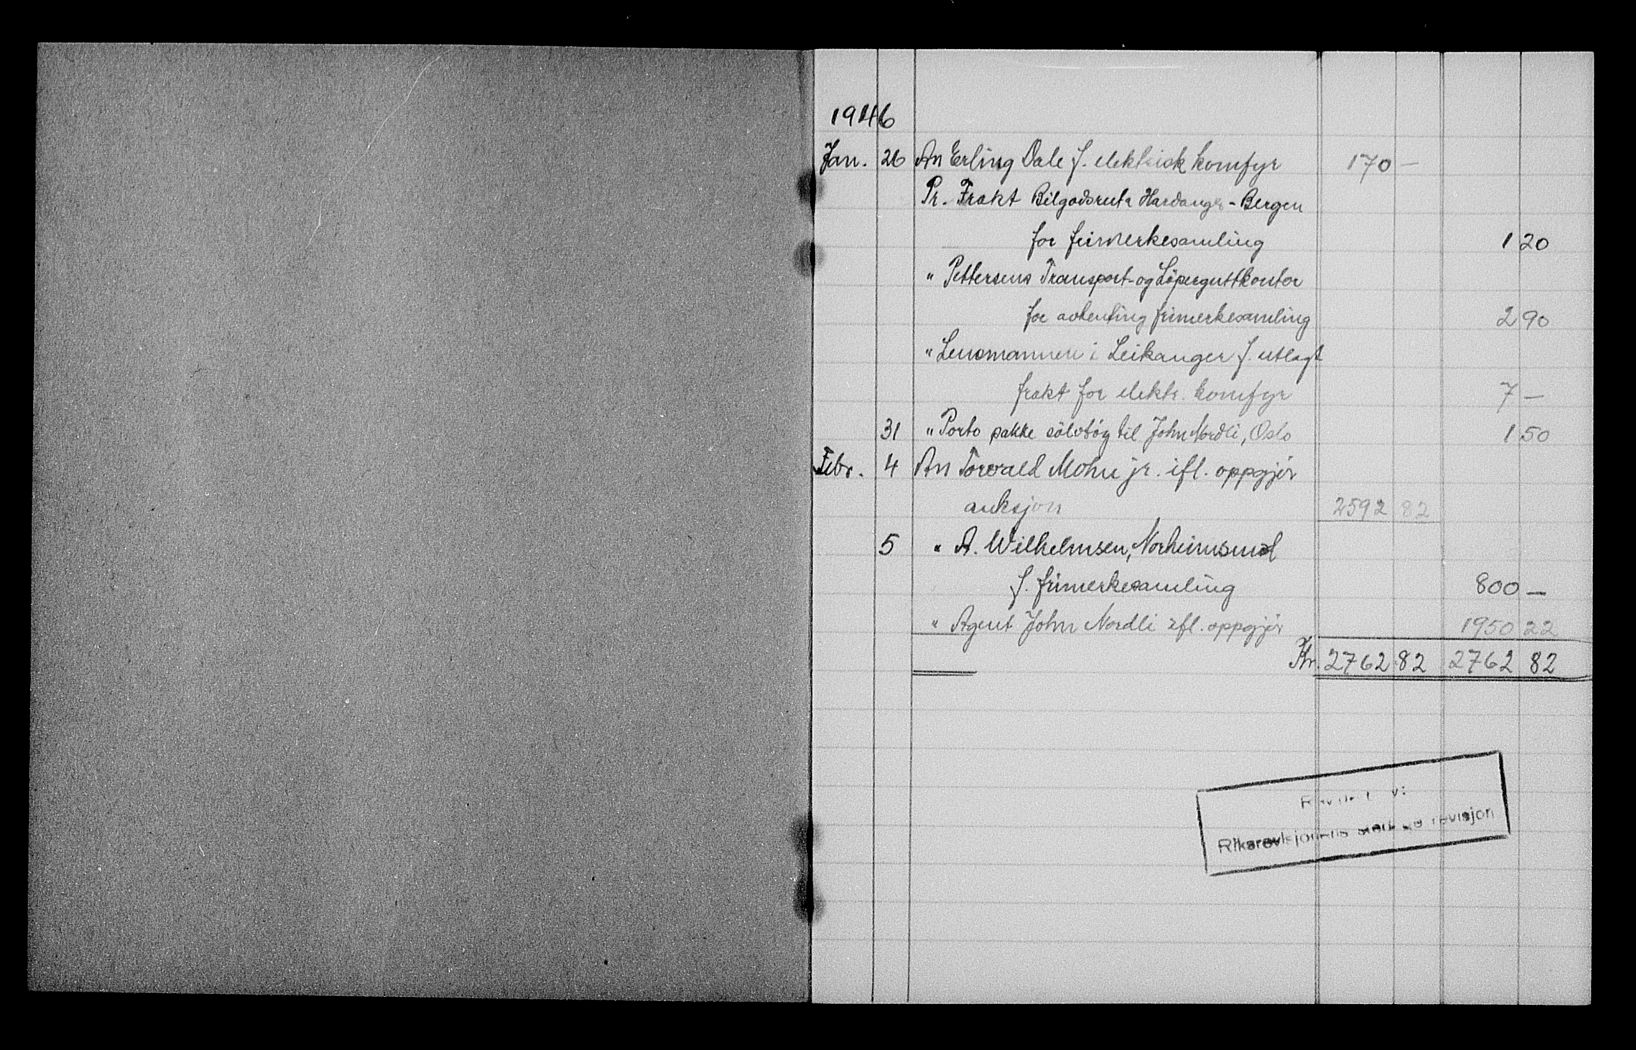 1946
Jan. 26 An Erling Dale f. elektrisk komfyr 170 —
Pr. Frakt Bilgodsruta Hardanger - Bergen
for frimerkesamling 1 20
" Pettersens Transport- og Löperguttkontor
for avhenting frimerkesamling 2 90
" Lensmannen i Leikanger f. utlagt
frakt for elektr. komfyr 7 —
31 " Porto pakke sölvtöy til John Nordli, Oslo 1 50
Febr. 4 An Torvald Mohn jr. ifl. oppgjör
auksjon 2592 82
5 " A. Wilhelmsen, Norheimsund
f. frimerkesamling 800 —
" Agent John Nordli ifl. oppgjör 1950 22
Kr. 2762 82 2762 82
Riksrevisjonens revisjon